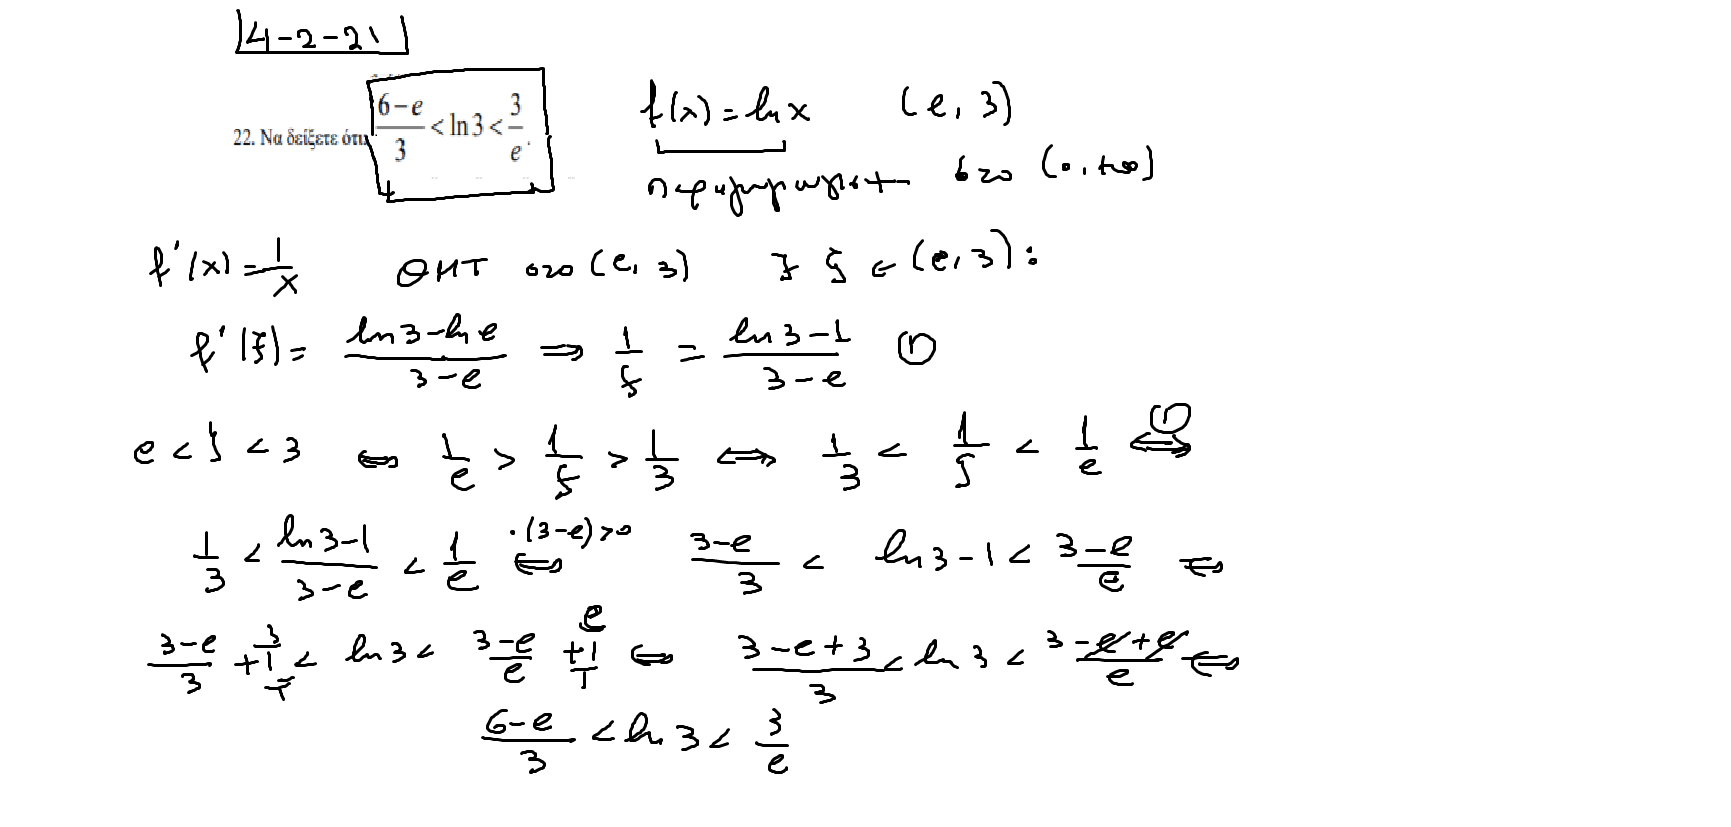 14-2-21
22. Να δείξετε ότι (6-e)/3 < ln3 < 3/e.
f(x) = ln x (e, 3)
παραγωγίσιμ στο (0, +∞)
f'(x) = 1/x ΘΜΤ στο (e, 3) ∃ ξ ∈ (e, 3):
f'(ξ) = (ln3 - ln e)/(3-e) ⇒ 1/ξ = (ln3-1)/(3-e) ①
e < ξ < 3 ⇔ 1/e > 1/ξ > 1/3 ⇔ 1/3 < 1/ξ < 1/e ⇔(1)
1/3 < (ln3-1)/(3-e) < 1/e ⇔ ·(3-e)>0 (3-e)/3 < ln3-1 < (3-e)/e ⇔
(3-e)/3 + 1/1 < ln3 < (3-e)/e + 1/1 ⇔ (3-e+3)/3 < ln3 < (3-e+e)/e ⇔
(6-e)/3 < ln3 < 3/e